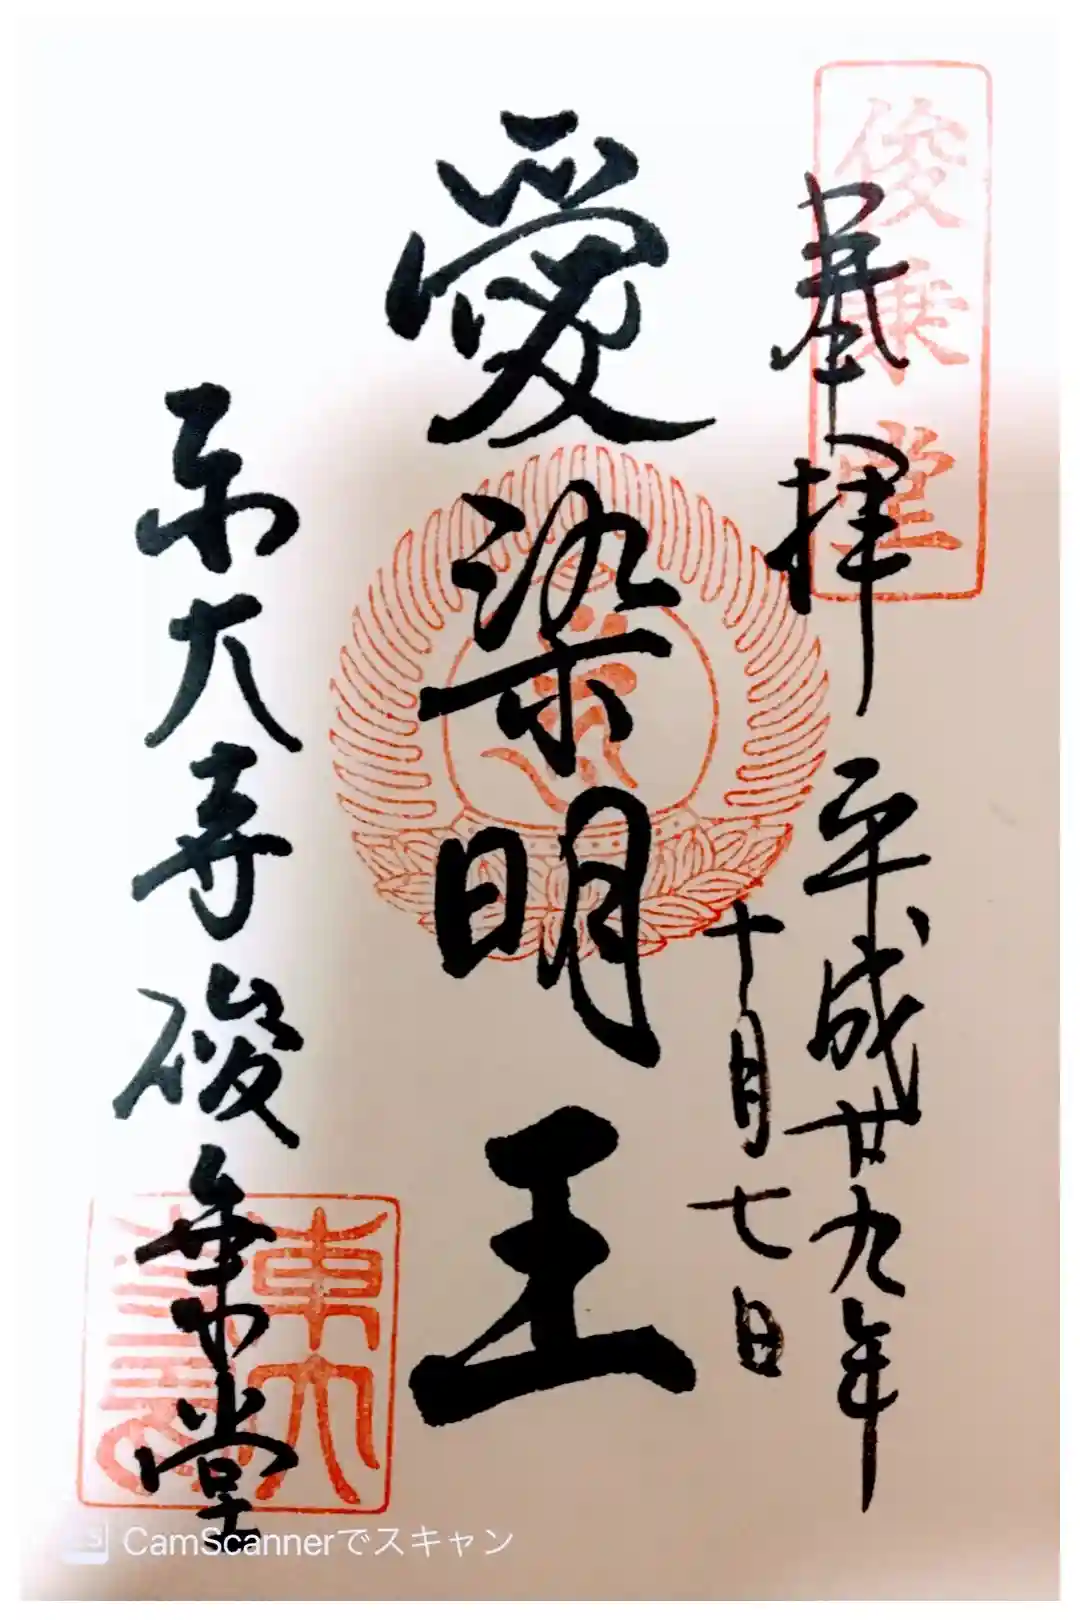 俊乗堂
奉拝
平成廿九年
十月七日
愛染明王
東大寺俊乗堂
東大
CamScannerでスキャン